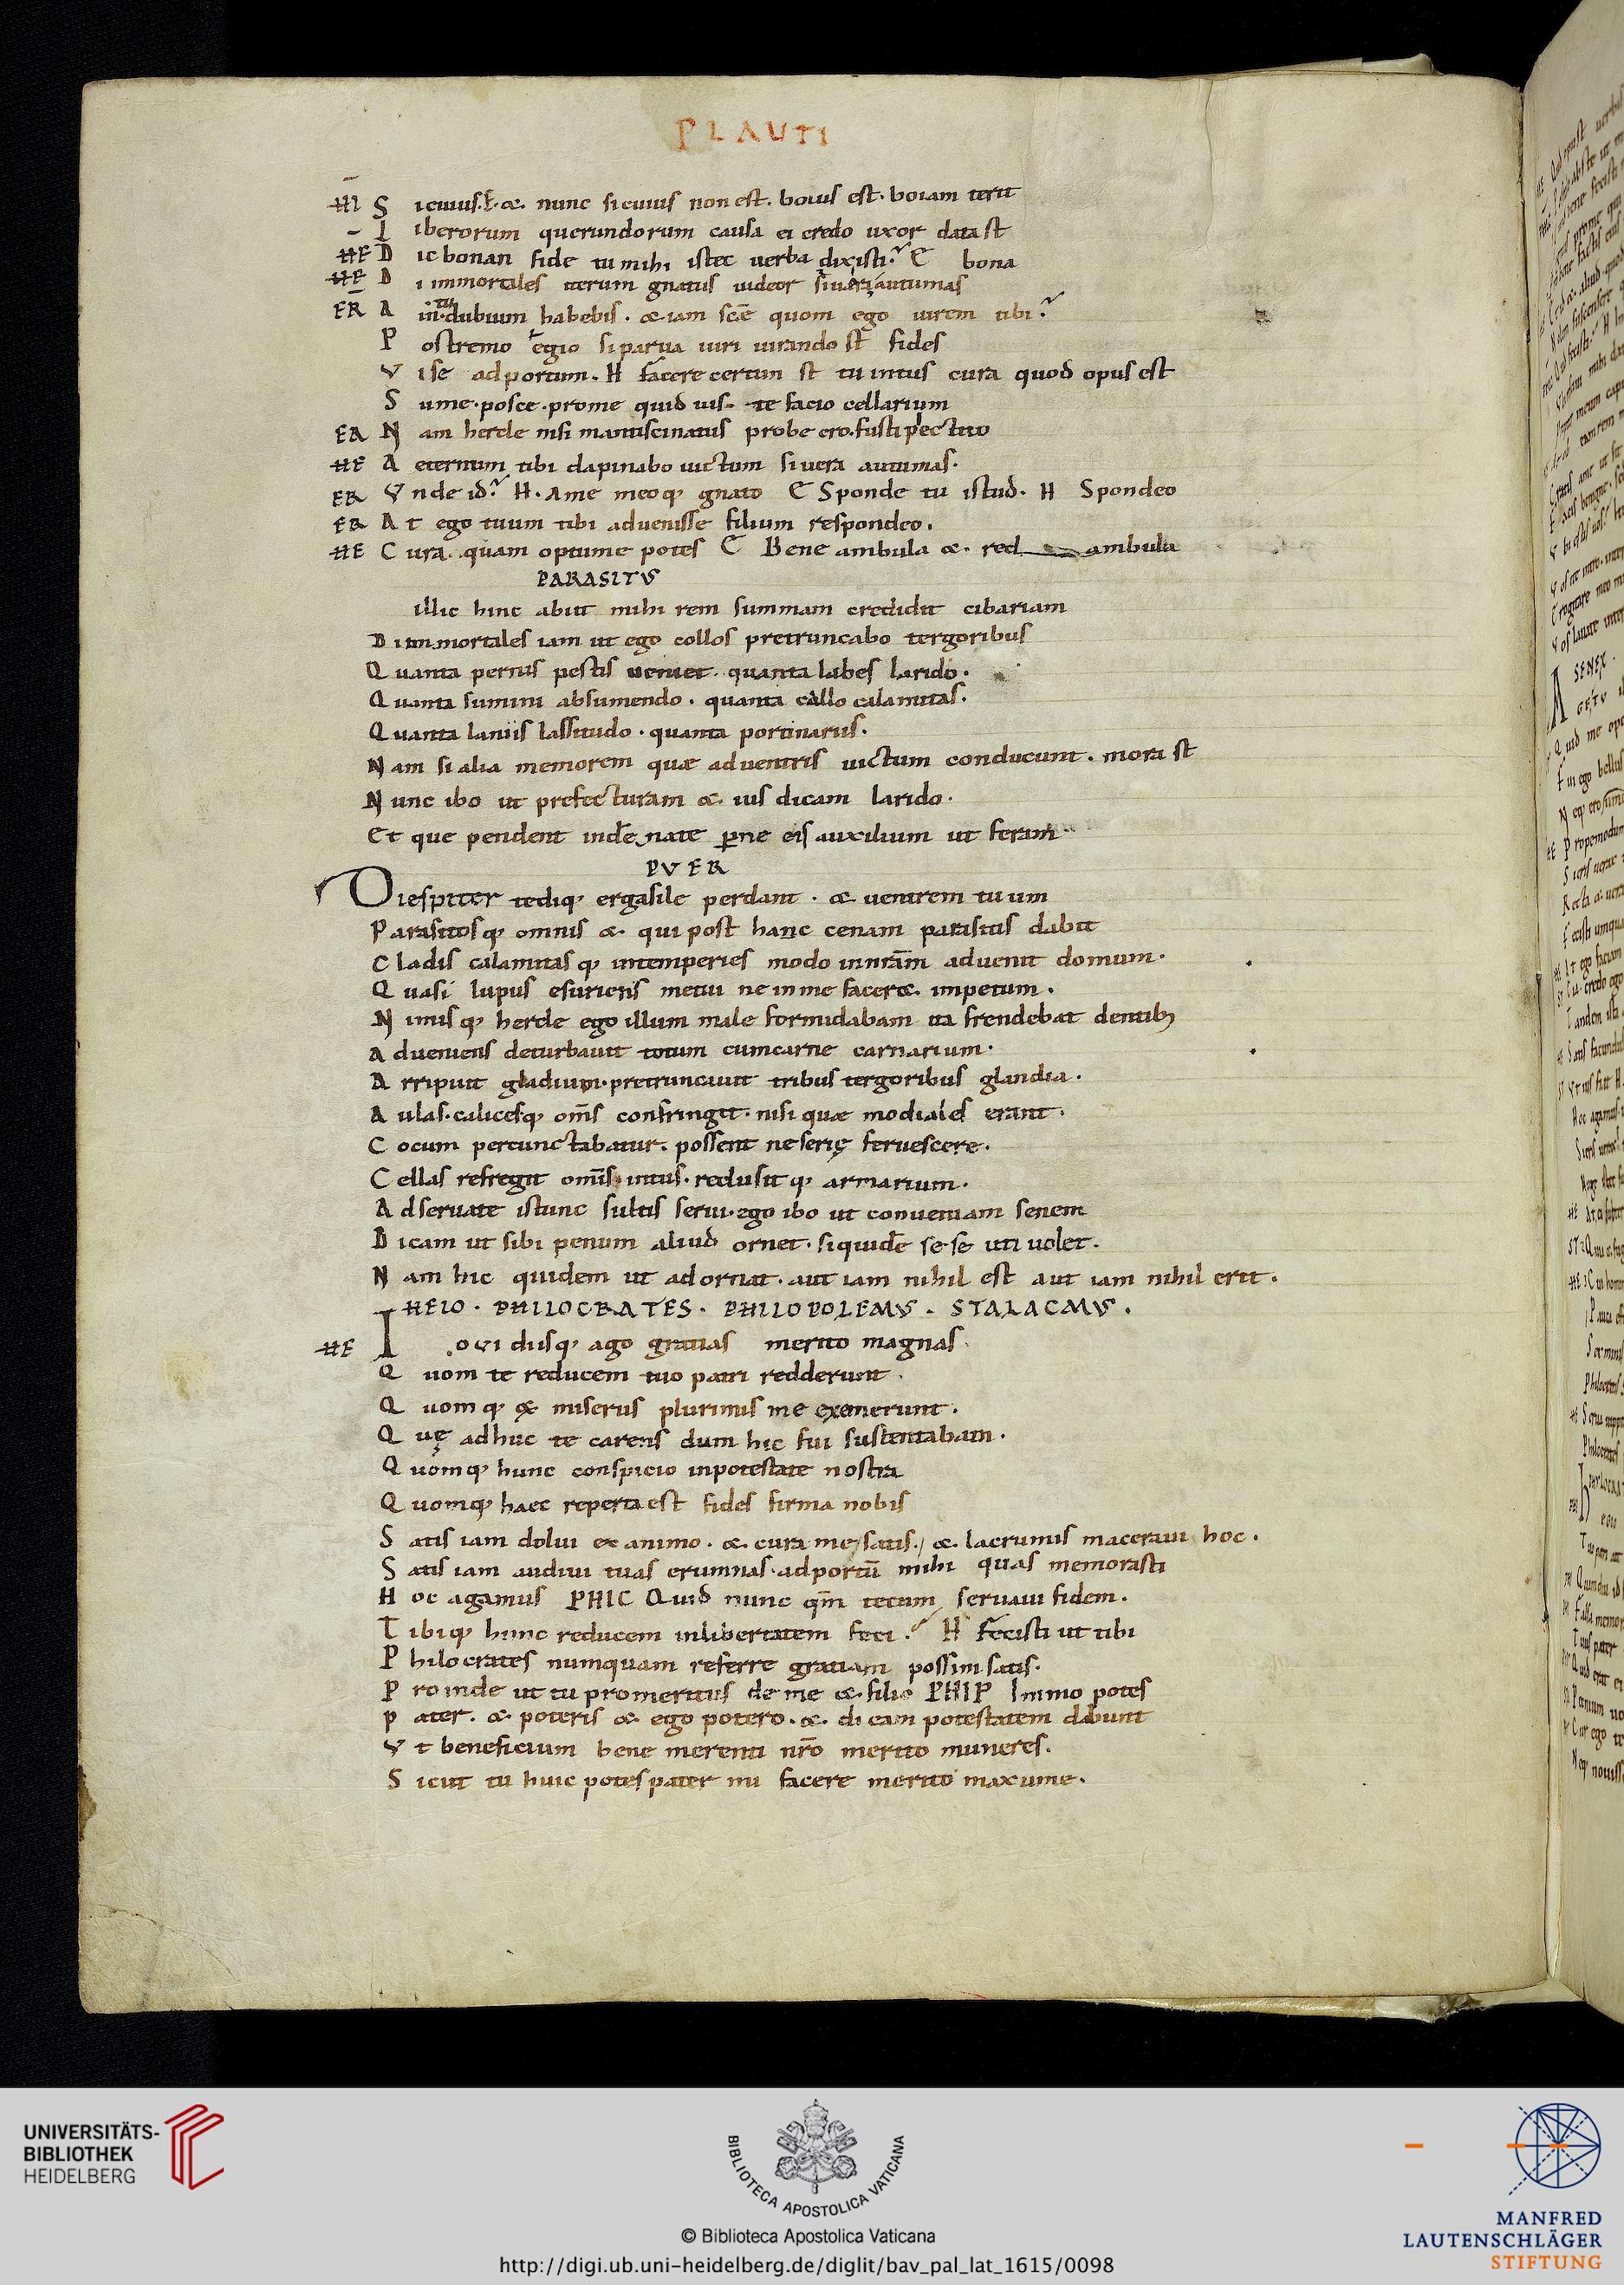 PLAUTI
HI S icuius. E. &. nunc sicuius non est. boius est. boiam terit
L iberorum querundorum causa ei credo uxor data st
HE D ic bonan fide tu mihi istec uerba dixisti? E bona
HE D i immortales iterum gnatus uideor si uera autumas
ER A in dubium habebis. &iam scē quom ego iurem tibi?
P ostremo egio siparua iuri iurando st fides
V ise adportum. H facere certum st tu intus cura quod opus est
S ume. posce. prome quid uis. te facio cellarium
ER N am hercle nisi mantiscinatus probe ero. fusti pectito
HE A eternum tibi dapinabo uictum si uera autumas.
ER V nde id? H. A me meoq; gnato E Sponde tu istud. H Spondeo
ER A t ego tuum tibi aduenisse filium respondeo.
HE C ura. quam optume potes E Bene ambula &. red ambula
PARASITVS
illic hinc abiit mihi rem summam credidit cibariam
D i immortales iam ut ego collos pretruncabo tergoribus
Q uanta pernis pestis ueniet. quanta labes larido.
Q uanta sumini absumendo. quanta callo calamitas.
Q uanta laniis lassitudo. quanta porcinariis.
N am si alia memorem quae aduentris uictum conducunt. mora st
N unc ibo ut prefecturam &. ius dicam larido.
Et que pendent indē nate perne eis auxilium ut feram
PVER
Diespiter tediq; ergasile perdant. & uentrem tuum
P arasitosq; omnis &. qui post hanc cenam parasitis dabit
C ladis calamitas q; intemperies modo innrām aduenit domum.
Q uasi lupus esuriens metui ne in me facer&. impetum.
N imis q; hercle ego illum male formidabam ita frendebat dentib;
A dueniens deturbauit totum cumcarne carnarium.
A rripuit gladium. pretruncauit tribus tergoribus glandia.
A ulas. calicesq; om̄s confringit. nisi quae modiales erant.
C ocum percunctabatur. possent ne serię feruescere.
C ellas refregit omīs intus. reclusit q; armarium.
A dseruate istunc sultis serui. ego ibo ut conueniam senem
D icam ut sibi penum aliud ornet. siquidē se se uti uolet.
N am hic quidem ut adornat. aut iam nihil est aut iam nihil erit.
HEIO. PHILOCRATES. PHILOPOLEMVS. STALACMVS.
HE I oui disq; ago gratias merito magnas.
Q uom te reducem tuo patri redderunt.
Q uom q; ex miseriis plurimis me exemerunt.
Q uę adhuc te carens dum hic fui sustentabam.
Q uomq; hunc conspicio inpotestate nostra
Q uomq; haec reperta est fides firma nobis
S atis iam dolui ex animo. &. cura me satis. &. lacrumis maceraui hoc.
S atis iam audiui tuas erumnas. adportū mihi quas memorasti
H oc agamus PHIC Quid nunc qm̄ tecum seruaui fidem.
T ibiq; hunc reducem inlibertatem feci? H fecisti ut tibi
P hilocrates numquam referre gratiam possim satis.
P roinde ut tu promeritus de me &. filio PHIP Immo potes
P ater. &. poteris &. ego potero. &. di eam potestatem dabunt
V t beneficium bene merenti nrō merito muneres.
S icut tu huic potes pater mi facere merito maxume.
UNIVERSITÄTS-
BIBLIOTHEK
HEIDELBERG
BIBLIOTECA APOSTOLICA VATICANA
© Biblioteca Apostolica Vaticana
http://digi.ub.uni-heidelberg.de/diglit/bav_pal_lat_1615/0098
MANFRED
LAUTENSCHLÄGER
STIFTUNG